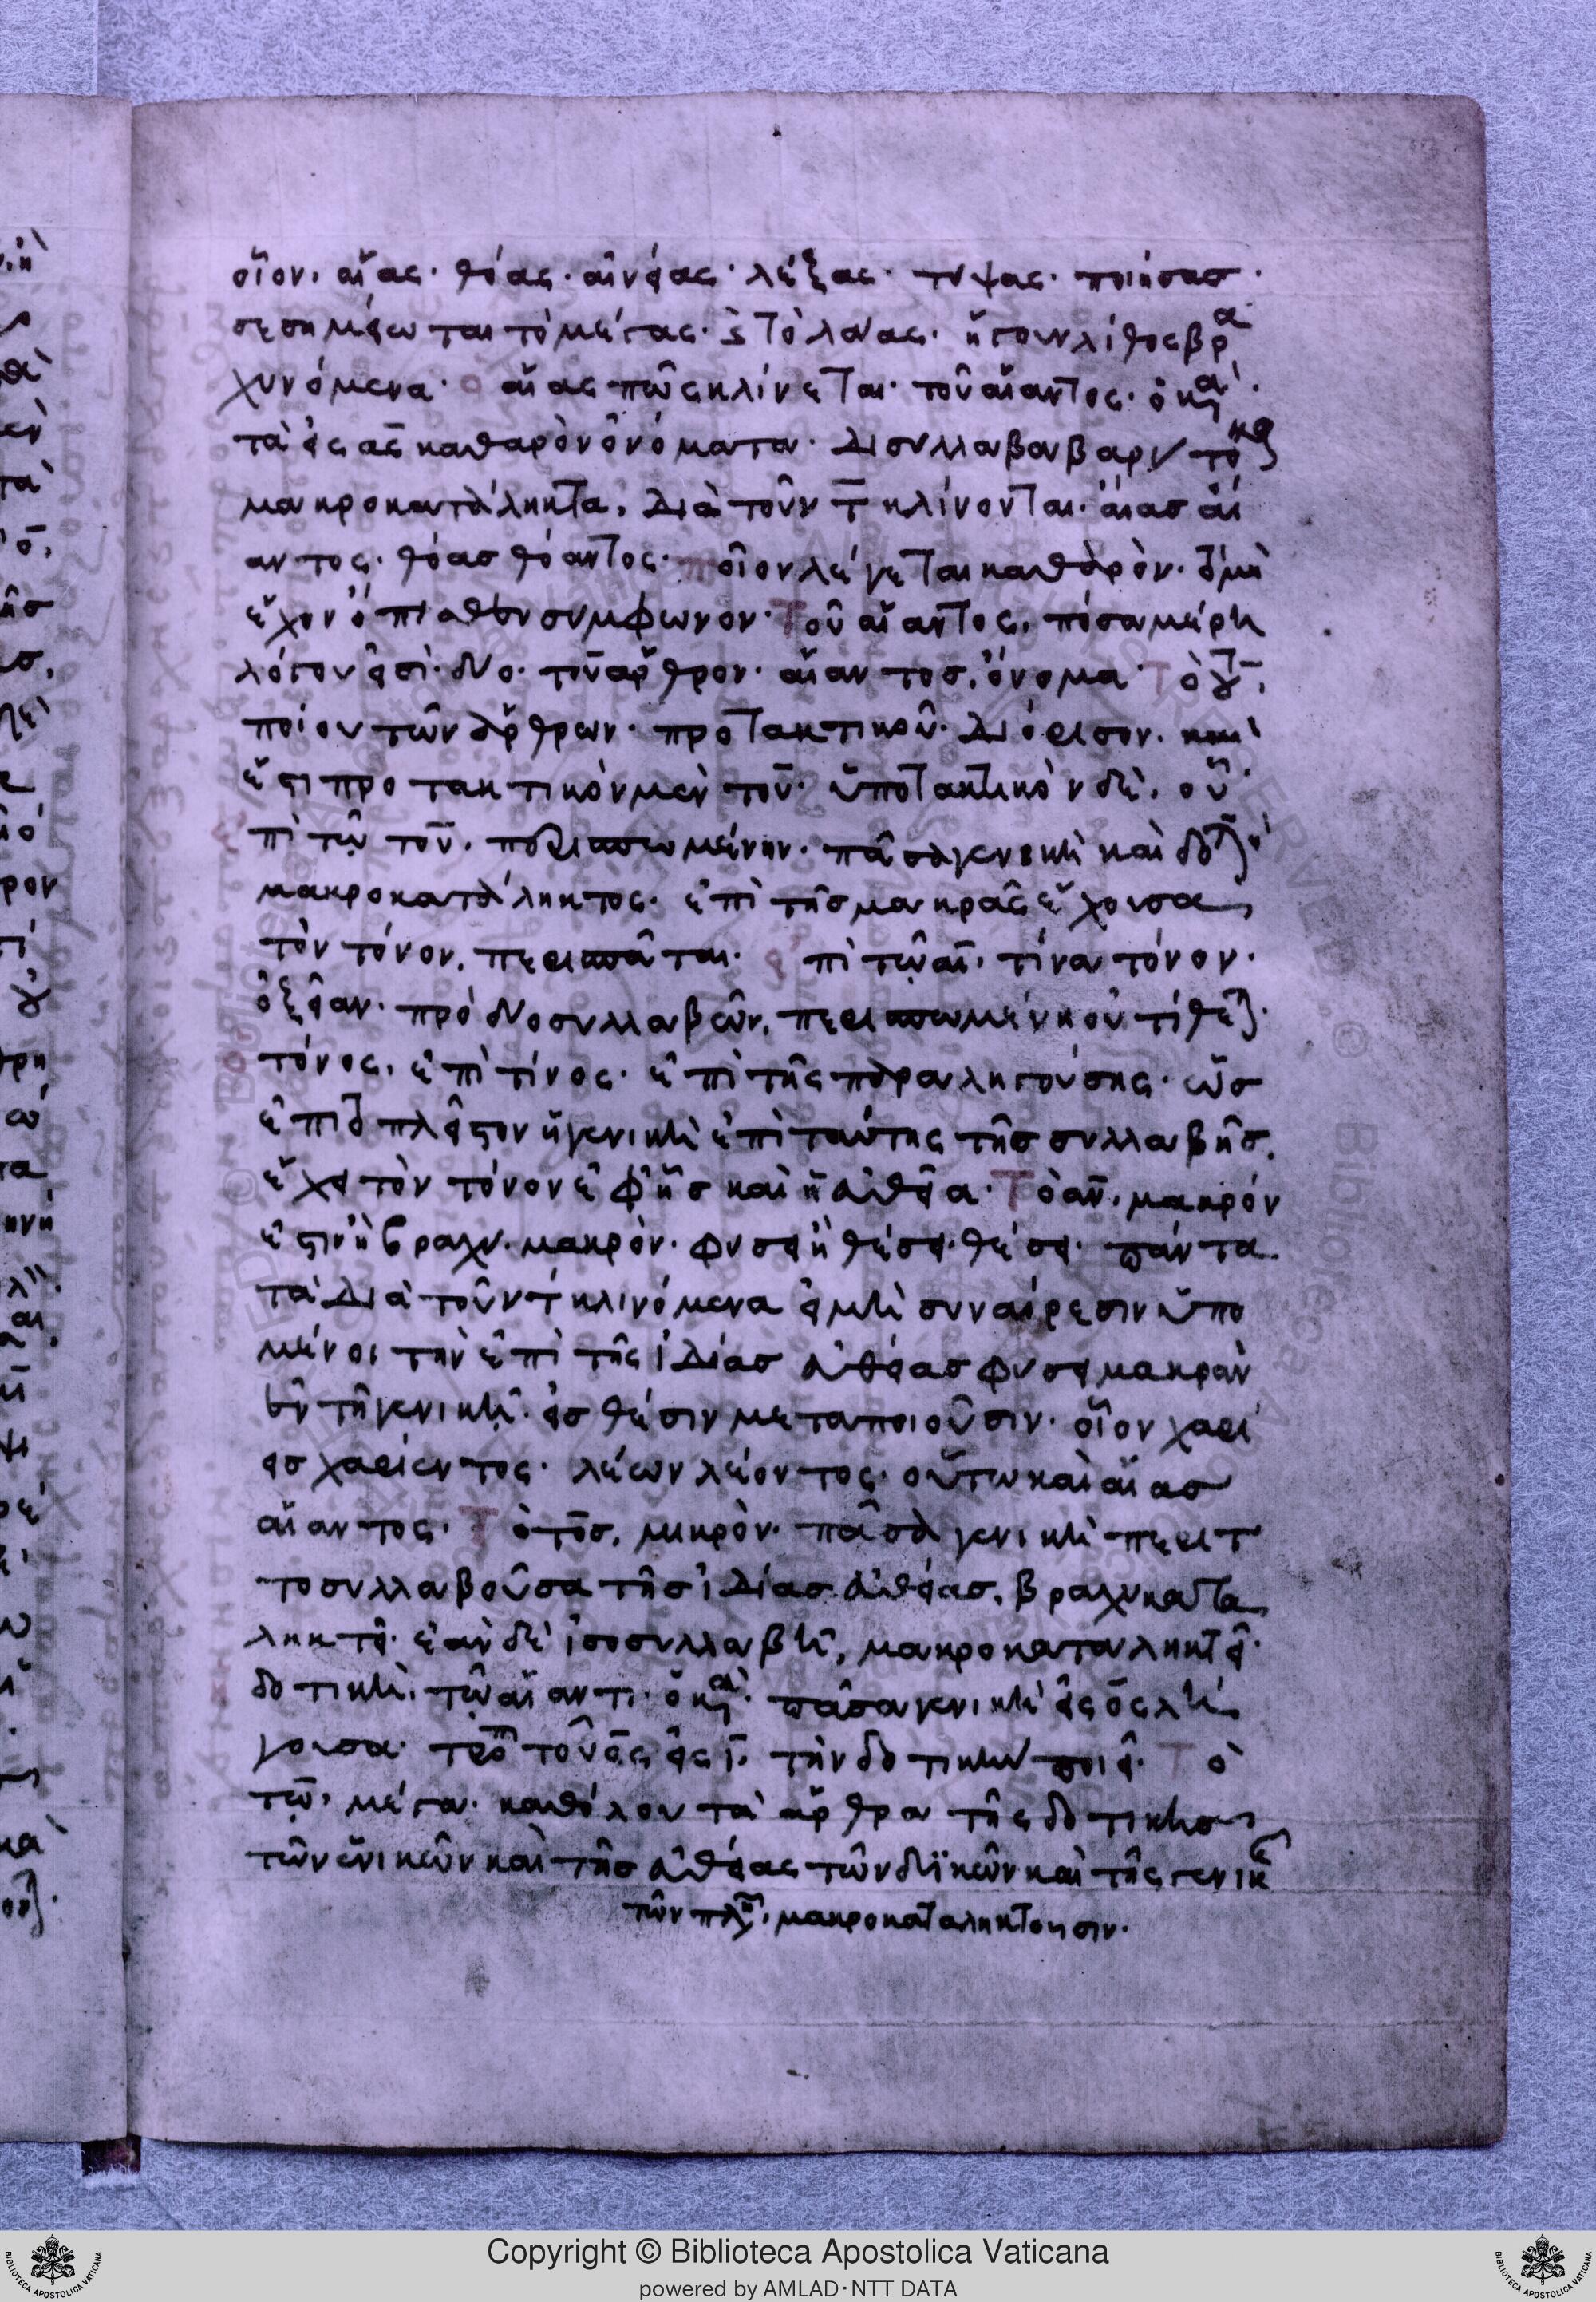 οἷον, αἴας· θόας· αἰνείας· λέξας· τύψας· ποιήσασ·
σεσημείωται τὸ μέγας· καὶ τὸ λᾶας· ἤγουν λίθος βρα
χυνόμενα· αἴας πῶς κλίνεται· τοῦ αἴαντος· ὁ κα·
τὰ εἰς ας καθαρὸν ὀνόματα· δισύλλαβα βαρύτο
μακροκατάληκτα, διὰ τοῦ ντ κλίνονται· αἴασ αἴ
αντος· θόασ θόαντος· ποῖον λέγεται καθαρὸν· ὃ μὴ
ἔχον ὄπισθεν σύμφωνον· Τοῦ αἴαντος, πόσα μέρη
λόγου εἰσὶ· δύο· τοῦ ἄρθρον· αἴαντοσ, ὄνομα· Τὸ γ,
ποίου τῶν ἄρθρων· προτακτικοῦ· διόρισον· καὶ
ἔστι προτακτικὸν μὲν τοῦ· ὑποτακτικὸν δὲ, οὗ·
πὶ τῷ τοῦ, περισπωμένην· πᾶσα γενικὴ καὶ δο
μακροκατάληκτος· ἐπὶ τῆσ μακρᾶς ἔχουσα
τὸν τόνον, περισπᾶται· πὶ τῷ αι· τίνα τόνον·
ὀξεῖαν· πρὸ δύο συλλαβῶν, περισπωμένη οὐ τίθε
τόνος, ἐπὶ τίνος· ἐπὶ τῆς παραληγούσης· ὡσ
ἐπὶ τὸ πλεῖστον ἡ γενικὴ ἐπὶ ταύτης τῆσ συλλαβῆσ,
ἔχει τὸν τόνον ἐφ' ἧσ καὶ ἡ εὐθεῖα· Τὸ αν, μακρόν
ἐστιν ἢ βραχυ· μακρὸν· φύσει ἢ θέσει· θέσει· πάντα
τὰ διὰ τοῦ ντ κλινόμενα εἰ μὴ συναίρεσιν ὑπο
μένοι τὴν ἐπὶ τῆς ἰδίασ εὐθείασ φύσει μακρὰν
ἐν τῇ γενικῇ· εἰσ θέσιν μεταποιοῦσιν· οἷον χαρί
εισ χαρίεντος· λέων λέοντος· οὕτω καὶ αἴασ
αἴαντος· Τὸ τοσ, μικρὸν· πᾶσα γενικὴ περιτ
τοσυλλαβοῦσα τῆσ ἰδίασ εὐθείασ, βραχυκατα
ληκτεῖ· ἐὰν δὲ ἰσοσυλλαβῇ, μακροκαταληκτεῖ·
δοτικὴ, τῷ αἴαντι· ὁ κα· πᾶσα γενικὴ εἰς ος λή
γουσα· τροπῇ τοῦ ος εἰς ι, τὴν δοτικὴν ποιεῖ· Τὸ
τῷ, μέγα· καθόλου τὰ ἄρθρα τῆς δοτικῆσ
τῶν ἑνικῶν καὶ τῆσ εὐθείας τῶν δυϊκῶν καὶ τῆς γενικ
τῶν πλη, μακροκαταληκτοῦσιν·
Copyright © Biblioteca Apostolica Vaticana
powered by AMLAD·NTT DATA